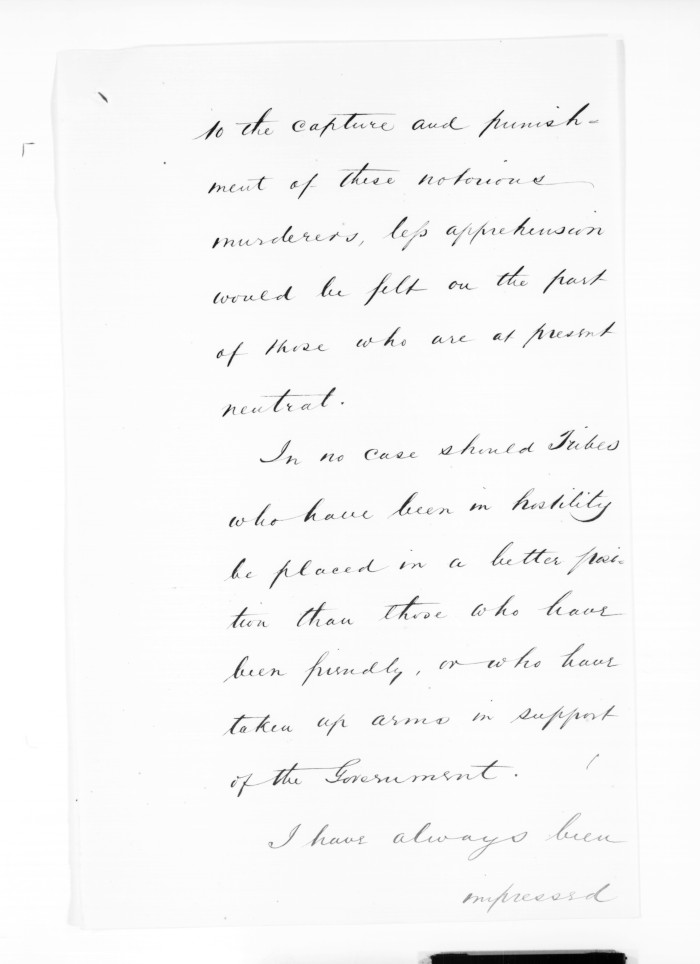 to the capture and punish-
ment of these notorious
murderers, less apprehension
would be felt on the part
of those who are at present
neutral.
In no case should Tribes
who have been in hostility
be placed in a better posi-
tion than those who have
been friendly, or who have
taken up arms in support
of the Government.
I have always been
impressed